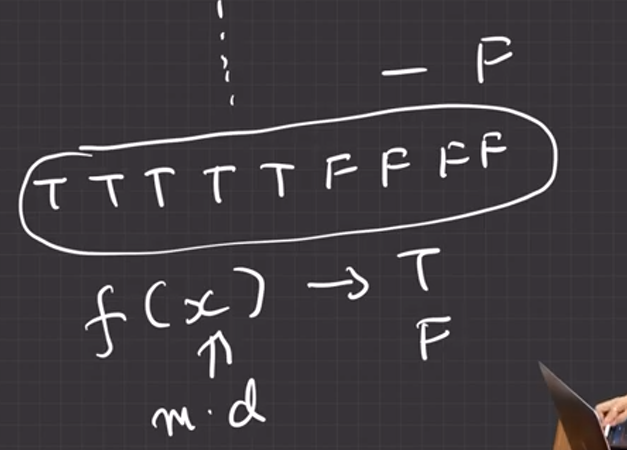 – F
T T T T T F F F F
f(x) → T
F
↑
m.d